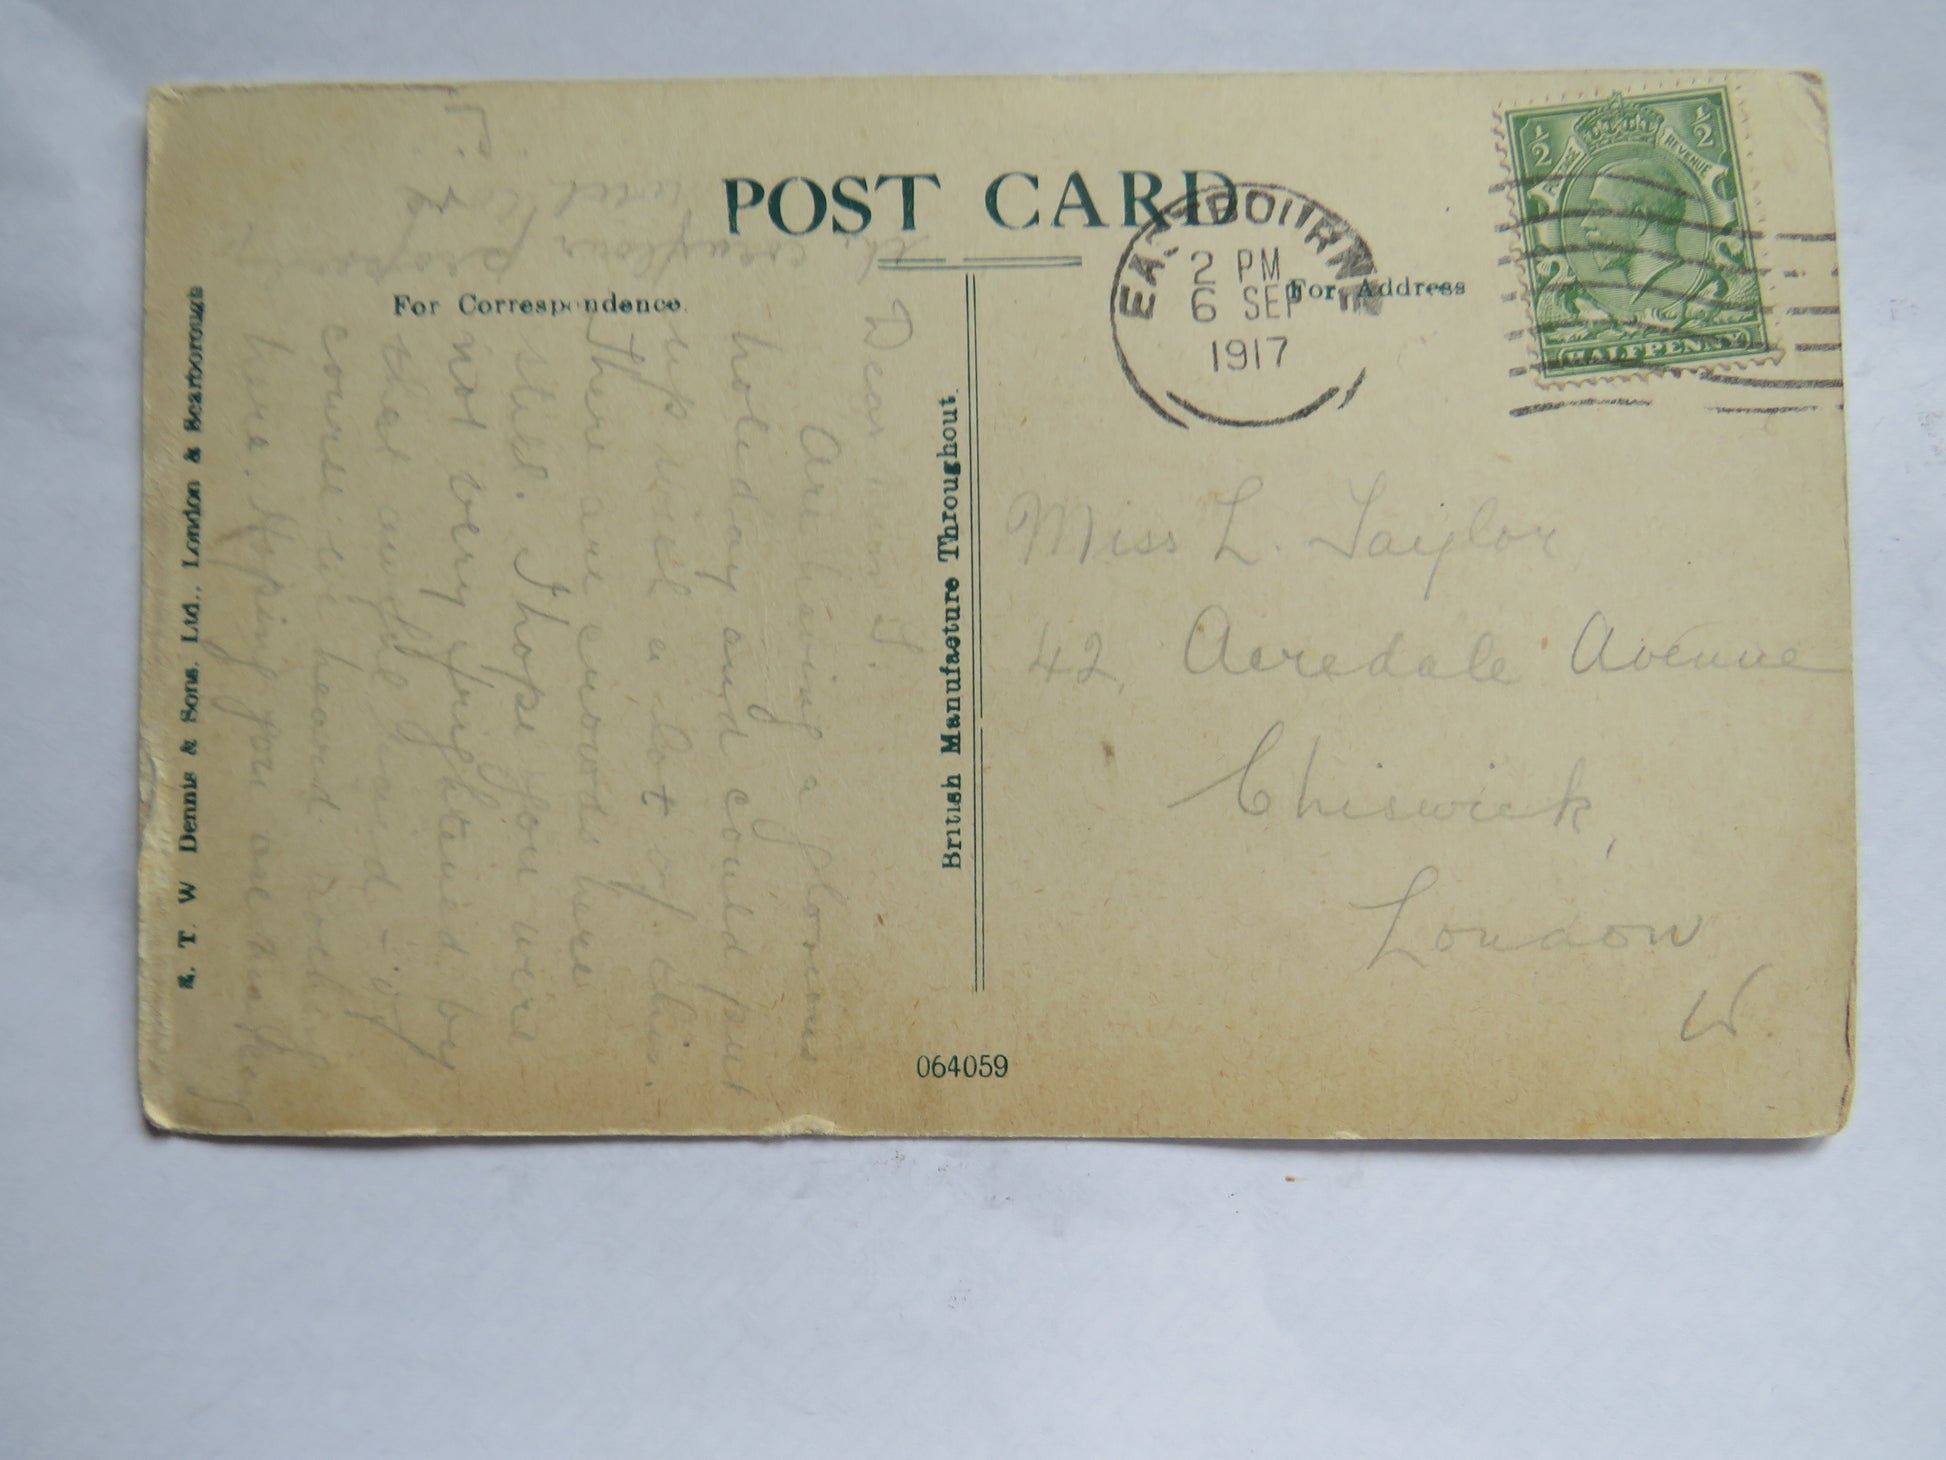 POST CARD
For Correspondence.
For Address
EASTBOURNE
2 PM
6 SEP
1917
½ ½
POSTAGE REVENUE
HALFPENNY
E. T. W Dennis & Sons. Ltd., London & Scarborough
British Manufacture Throughout.
064059
Miss L. Taylor
42, Acredale Avenue
Chiswick,
London
W.
Dear
Are having a glorious
holiday and could put
up with a lot of this.
There are crowds here
still. I hope you were
not very frightened by
that awful raid - of
course we heard
here. Hoping you are
the cornflour